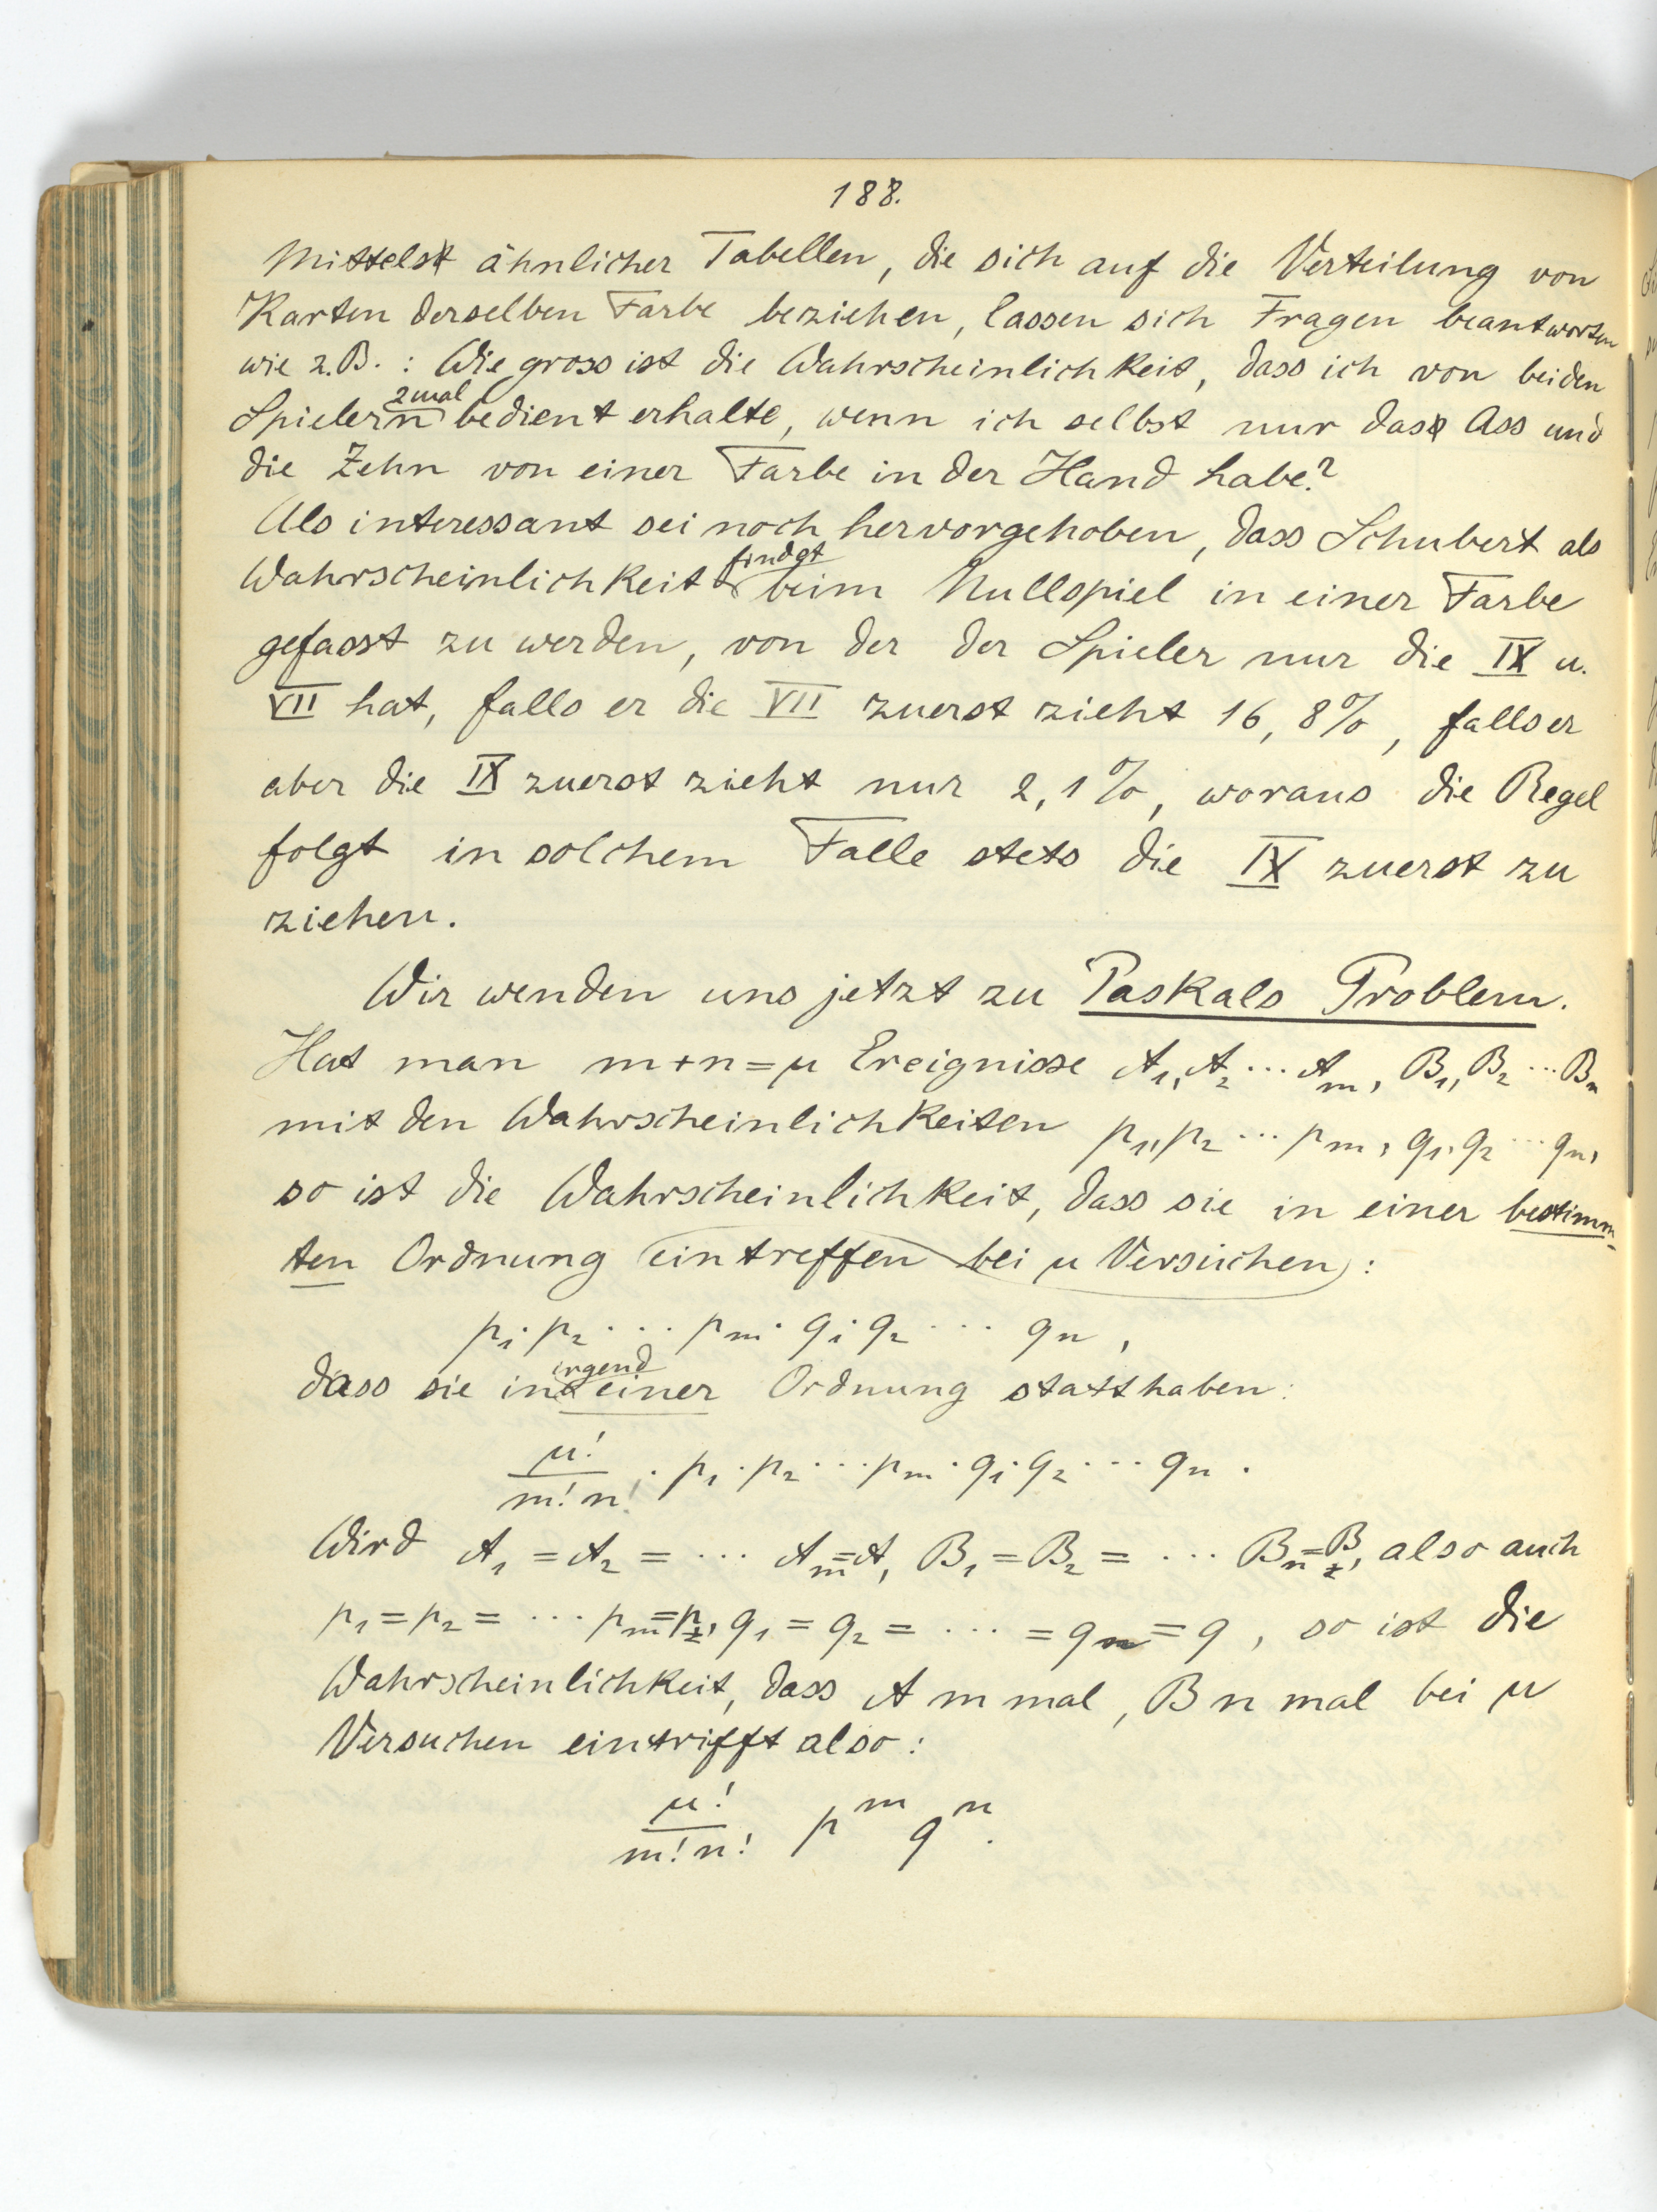 188.
Mittelst ähnlicher Tabellen, die sich auf die Verteilung von
Karten derselben Farbe beziehen, lassen sich Fragen beantworten
wie z.B.: Wie gross ist die Wahrscheinlichkeit, dass ich von beiden
Spielern 2mal bedient erhalte, wenn ich selbst nur das Ass und
die Zehn von einer Farbe in der Hand habe?
Als interessant sei noch hervorgehoben, dass Schubert als
Wahrscheinlichkeit findet beim Nullspiel in einer Farbe
gefasst zu werden, von der der Spieler nur die IX u.
VII hat, falls er die VII zuerst zieht 16,8%, falls er
aber die IX zuerst zieht nur 2,1%, woraus die Regel
folgt in solchem Falle stets die IX zuerst zu
ziehen.
Wir wenden uns jetzt zu Paskals Problem.
Hat man m+n=μ Ereignisse A₁, A₂ ... Aₘ, B₁, B₂ ... Bₙ
mit den Wahrscheinlichkeiten p₁, p₂ ... pₘ, q₁, q₂ ... qₙ,
so ist die Wahrscheinlichkeit, dass sie in einer bestimm-
ten Ordnung eintreffen bei μ Versuchen:
p₁·p₂ ... pₘ·q₁·q₂ ... qₙ,
dass sie in irgend einer Ordnung statthaben:
μ!/m!n! · p₁·p₂ ... pₘ·q₁·q₂ ... qₙ.
Wird A₁ = A₂ = ... Aₘ=A, B₁ = B₂ = ... Bₙ=B, also auch
p₁ = p₂ = ... pₘ=p, q₁ = q₂ = ... = qₙ = q, so ist die
Wahrscheinlichkeit, dass A m mal, B n mal bei μ
Versuchen eintrifft also:
μ!/m!n! pᵐ qⁿ.